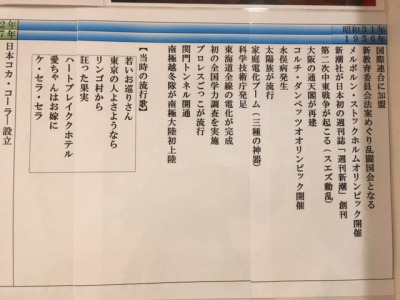 昭和３１年
１９５６年
国際連合に加盟
新教育委員会法案めぐり乱闘国会となる
メルボルン・ストックホルムオリンピック開催
新潮社が日本初の週刊誌「週刊新潮」創刊
第二次中東戦争が起こる（スエズ動乱）
大阪の通天閣が再建
コルチナ・ダンペッツオオリンピック開催
水俣病発生
太陽族が流行
家庭電化ブーム（三種の神器）
科学技術庁発足
東海道全線の電化が完成
初の全国学力調査を実施
プロレスごっこが流行
関門トンネル開通
南極越冬隊が南極大陸初上陸
【当時の流行歌】
若いお巡りさん
東京の人よさようなら
リンゴ村から
狂った果実
ハートブレイクホテル
愛ちゃんはお嫁に
ケ・セラ・セラ
日本コカ・コーラー設立